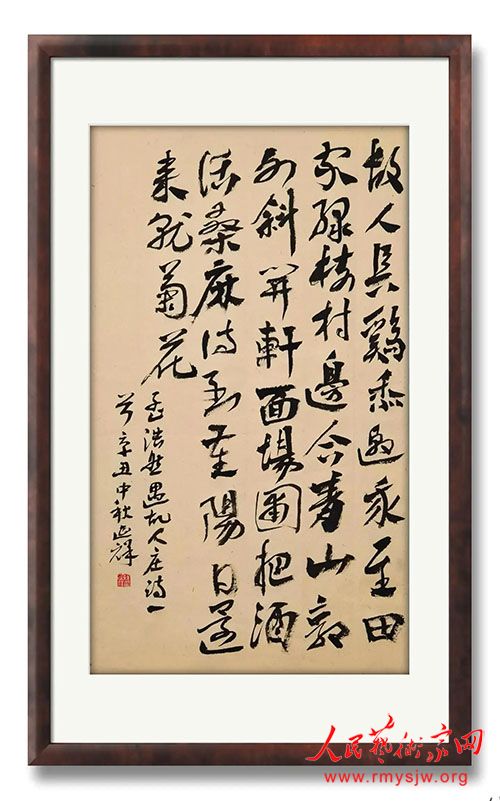 故人具鷄黍邀我至田
家綠樹村邊合青山郭
外斜開軒面場圃把酒
話桑麻待到重陽日還
來就菊花
孟浩然過故人庄詩一
首辛丑中秋延輝
人民艺术家网
www.rmysjw.org